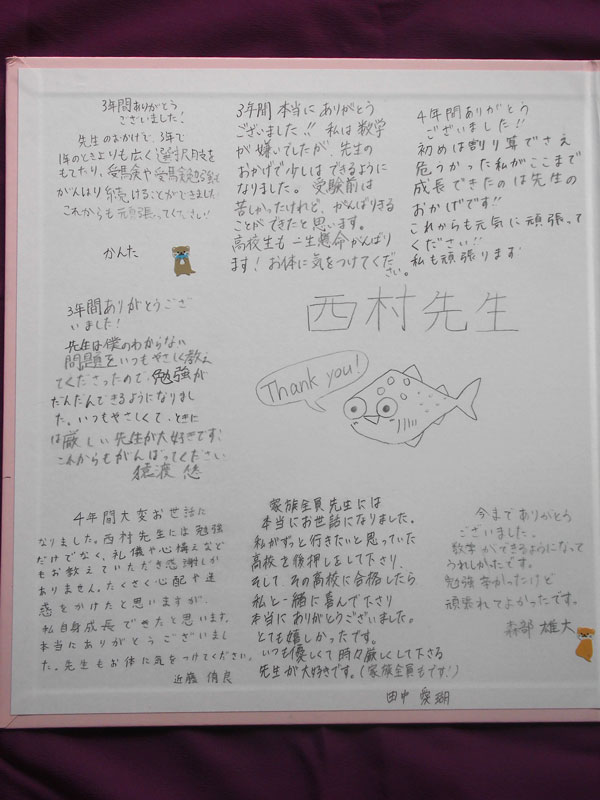 3年間ありがとう
ございました!
先生のおかげで、3年で
1年のときよりも広く選択肢を
もてたり、受験や受験勉強を
がんばり続けることができました
これからも頑張ってください!
かんた
3年間本当にありがとう
ございました!! 私は数学
が嫌いでしたが、先生の
おかげで少しは できるように
なりました。受験前は
苦しかったけれど、がんばりきる
ことができたと思います。
高校生も一生懸命がんばり
ます! お体に気をつけてください。
4年間ありがとう
ございました!!
初めは割り算でさえ
危うかった私がここまで
成長できたのは先生の
おかげです!!
これからも元気に頑張って
ください!!
私も頑張ります
西村先生
Thank you!
3年間ありがとうござ
いました!
先生は僕のわからない
問題をいつもやさしく教え
てくださったので、勉強が
だんだんできるようになりまし
た。いつもやさしくて、ときに
は厳しい先生が大好きです!
これからもがんばってください
猿渡 悠
4年間大変お世話に
なりました。西村先生には勉強
だけでなく、礼儀や心構えなど
もお教えていただき感謝しか
ありません。たくさく心配や迷
惑をかけたと思いますが、
私自身成長できたと思います。
本当にありがとうございまし
た。先生もお体に気をつけてください。
近藤 侑良
家族全員先生には
本当にお世話になりました。
私がずっと行きたいと思っていた
高校を後押しをして下さり、
そして、その高校に合格したら
私と一緒に喜んで下さり
本当にありがとうございました。
とても嬉しかったです。
いつも優しくて時々厳しくして下さる
先生が大好きです。(家族全員もです!)
田中
今までありがとう
ございました。
数学ができるようになって
うれしかったです。
勉強辛かったけど
頑張れてよかったです。
森部 雄大